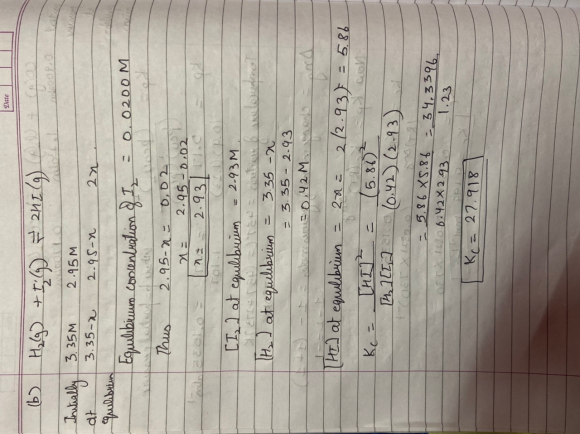 Date
(b) H₂(g) + I₂(g) ⇌ 2HI(g)
Initially 3.35M 2.95M
At equilibrium 3.35-x 2.95-x 2x
Equilibrium concentration of I₂ = 0.0200M
Thus 2.95-x = 0.02
x = 2.95-0.02
x = 2.93
[I₂] at equilibrium = 2.93M
[H₂] at equilibrium = 3.35-x
= 3.35-2.93
= 0.42M
[HI] at equilibrium = 2x = 2(2.93) = 5.86
Kc = [HI]² / [H₂][I₂] = (5.86)² / (0.42)(2.93)
= 5.86×5.86 / 0.42×2.93 = 34.3396 / 1.23
Kc = 27.918